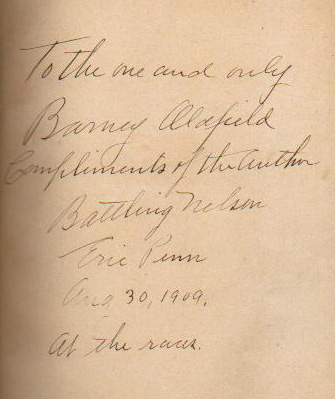 To the one and only
Barney Oldfield
Compliments of the Author
Battling Nelson
Eric Penn
Aug 30, 1909.
At the races.